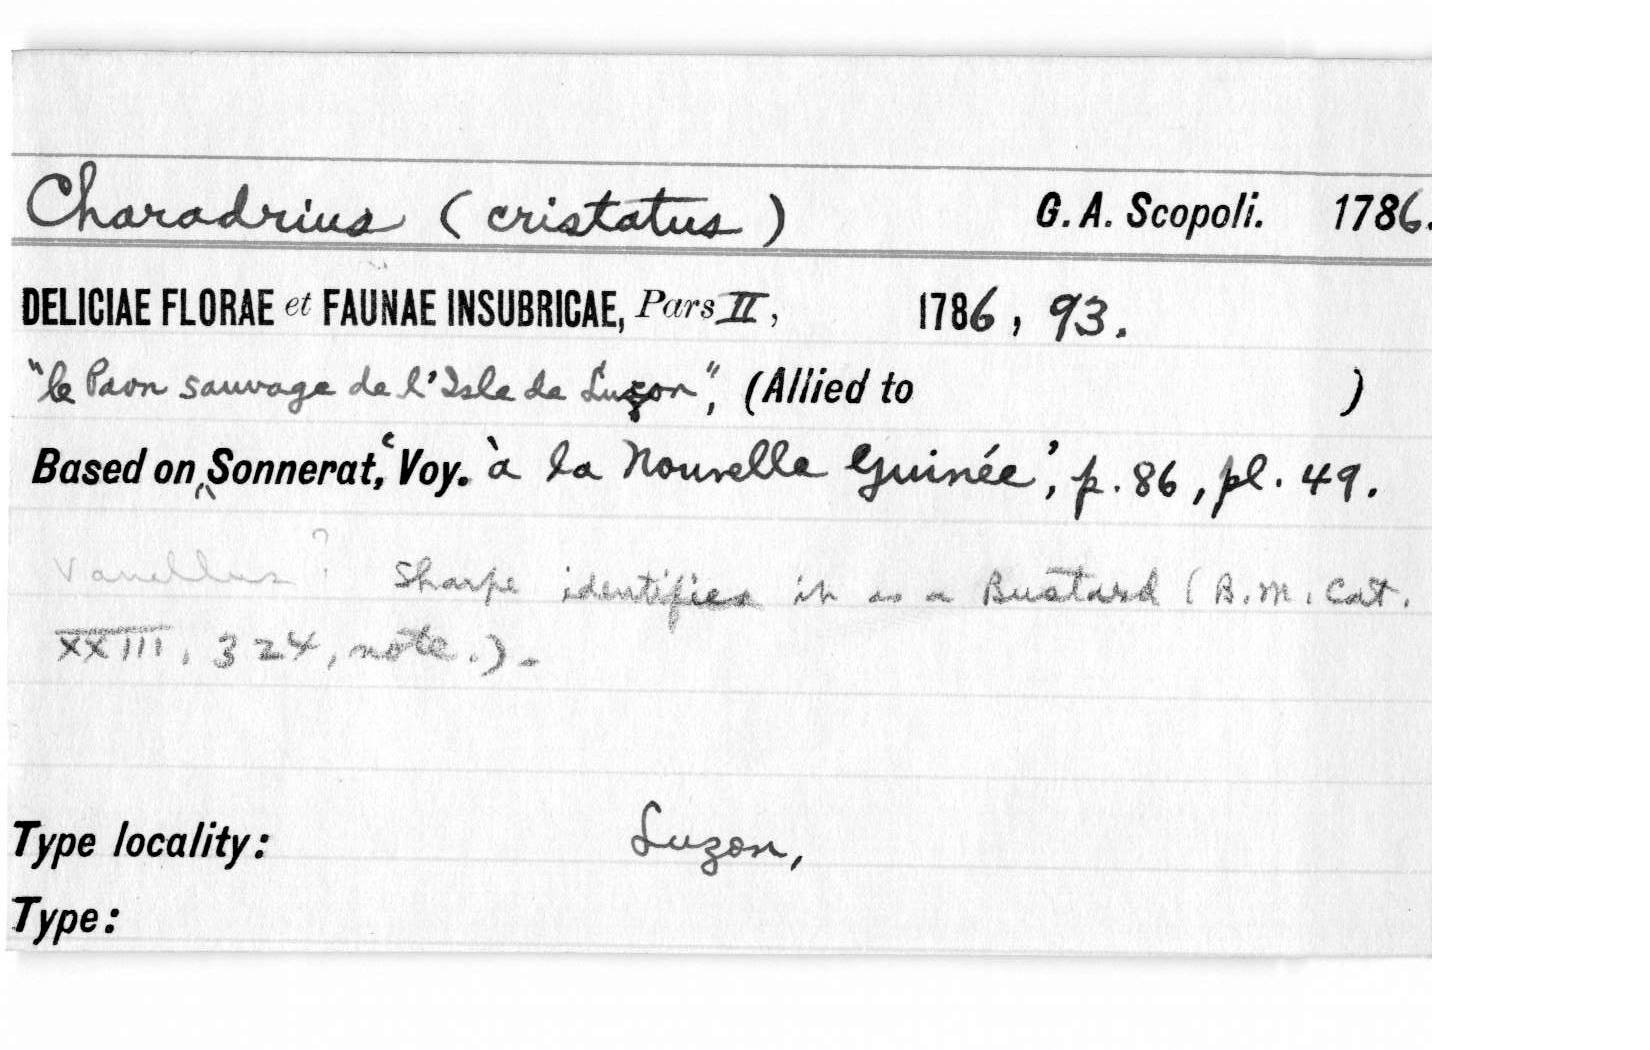 Charadrius (cristatus) G. A. Scopoli. 1786.
DELICIAE FLORAE et FAUNAE INSUBRICAE, Pars II, 1786, 93.
"le Paon sauvage de l'Isle de Luçon", (Allied to )
Based on Sonnerat, 'Voy. à la Nouvelle Guinée', p. 86, pl. 49.
Vanellus? Sharpe identifies it as a Bustard (B.M. Cat.
XXIII, 324, note.).
Type locality: Luzon,
Type: